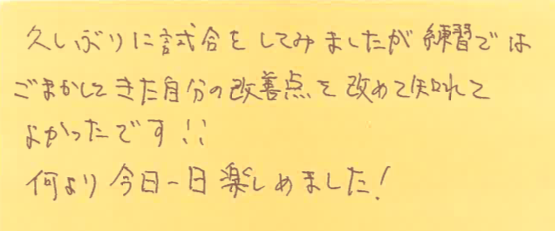 久しぶりに試合をしてみましたが練習では
ごまかしてきた自分の改善点を改めて知れて
よかったです!!
何より今日一日楽しめました!